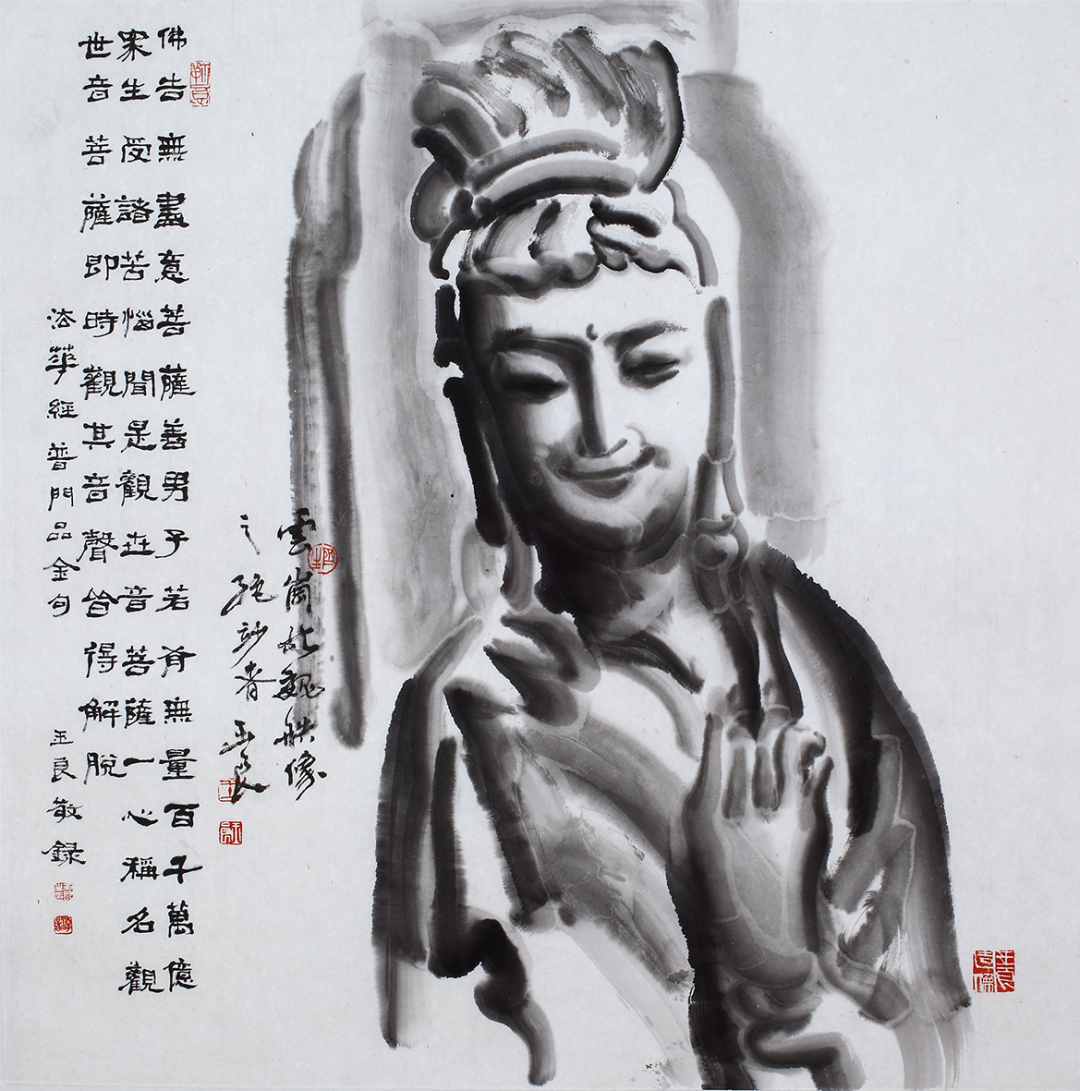 佛告無盡意菩薩善男子若有無量百千萬億
眾生受諸苦惱聞是觀世音菩薩一心稱名觀
世音菩薩即時觀其音聲皆得解脫
法華經普門品金句 玉良敬録
雲崗北魏像
之絕妙者 玉良